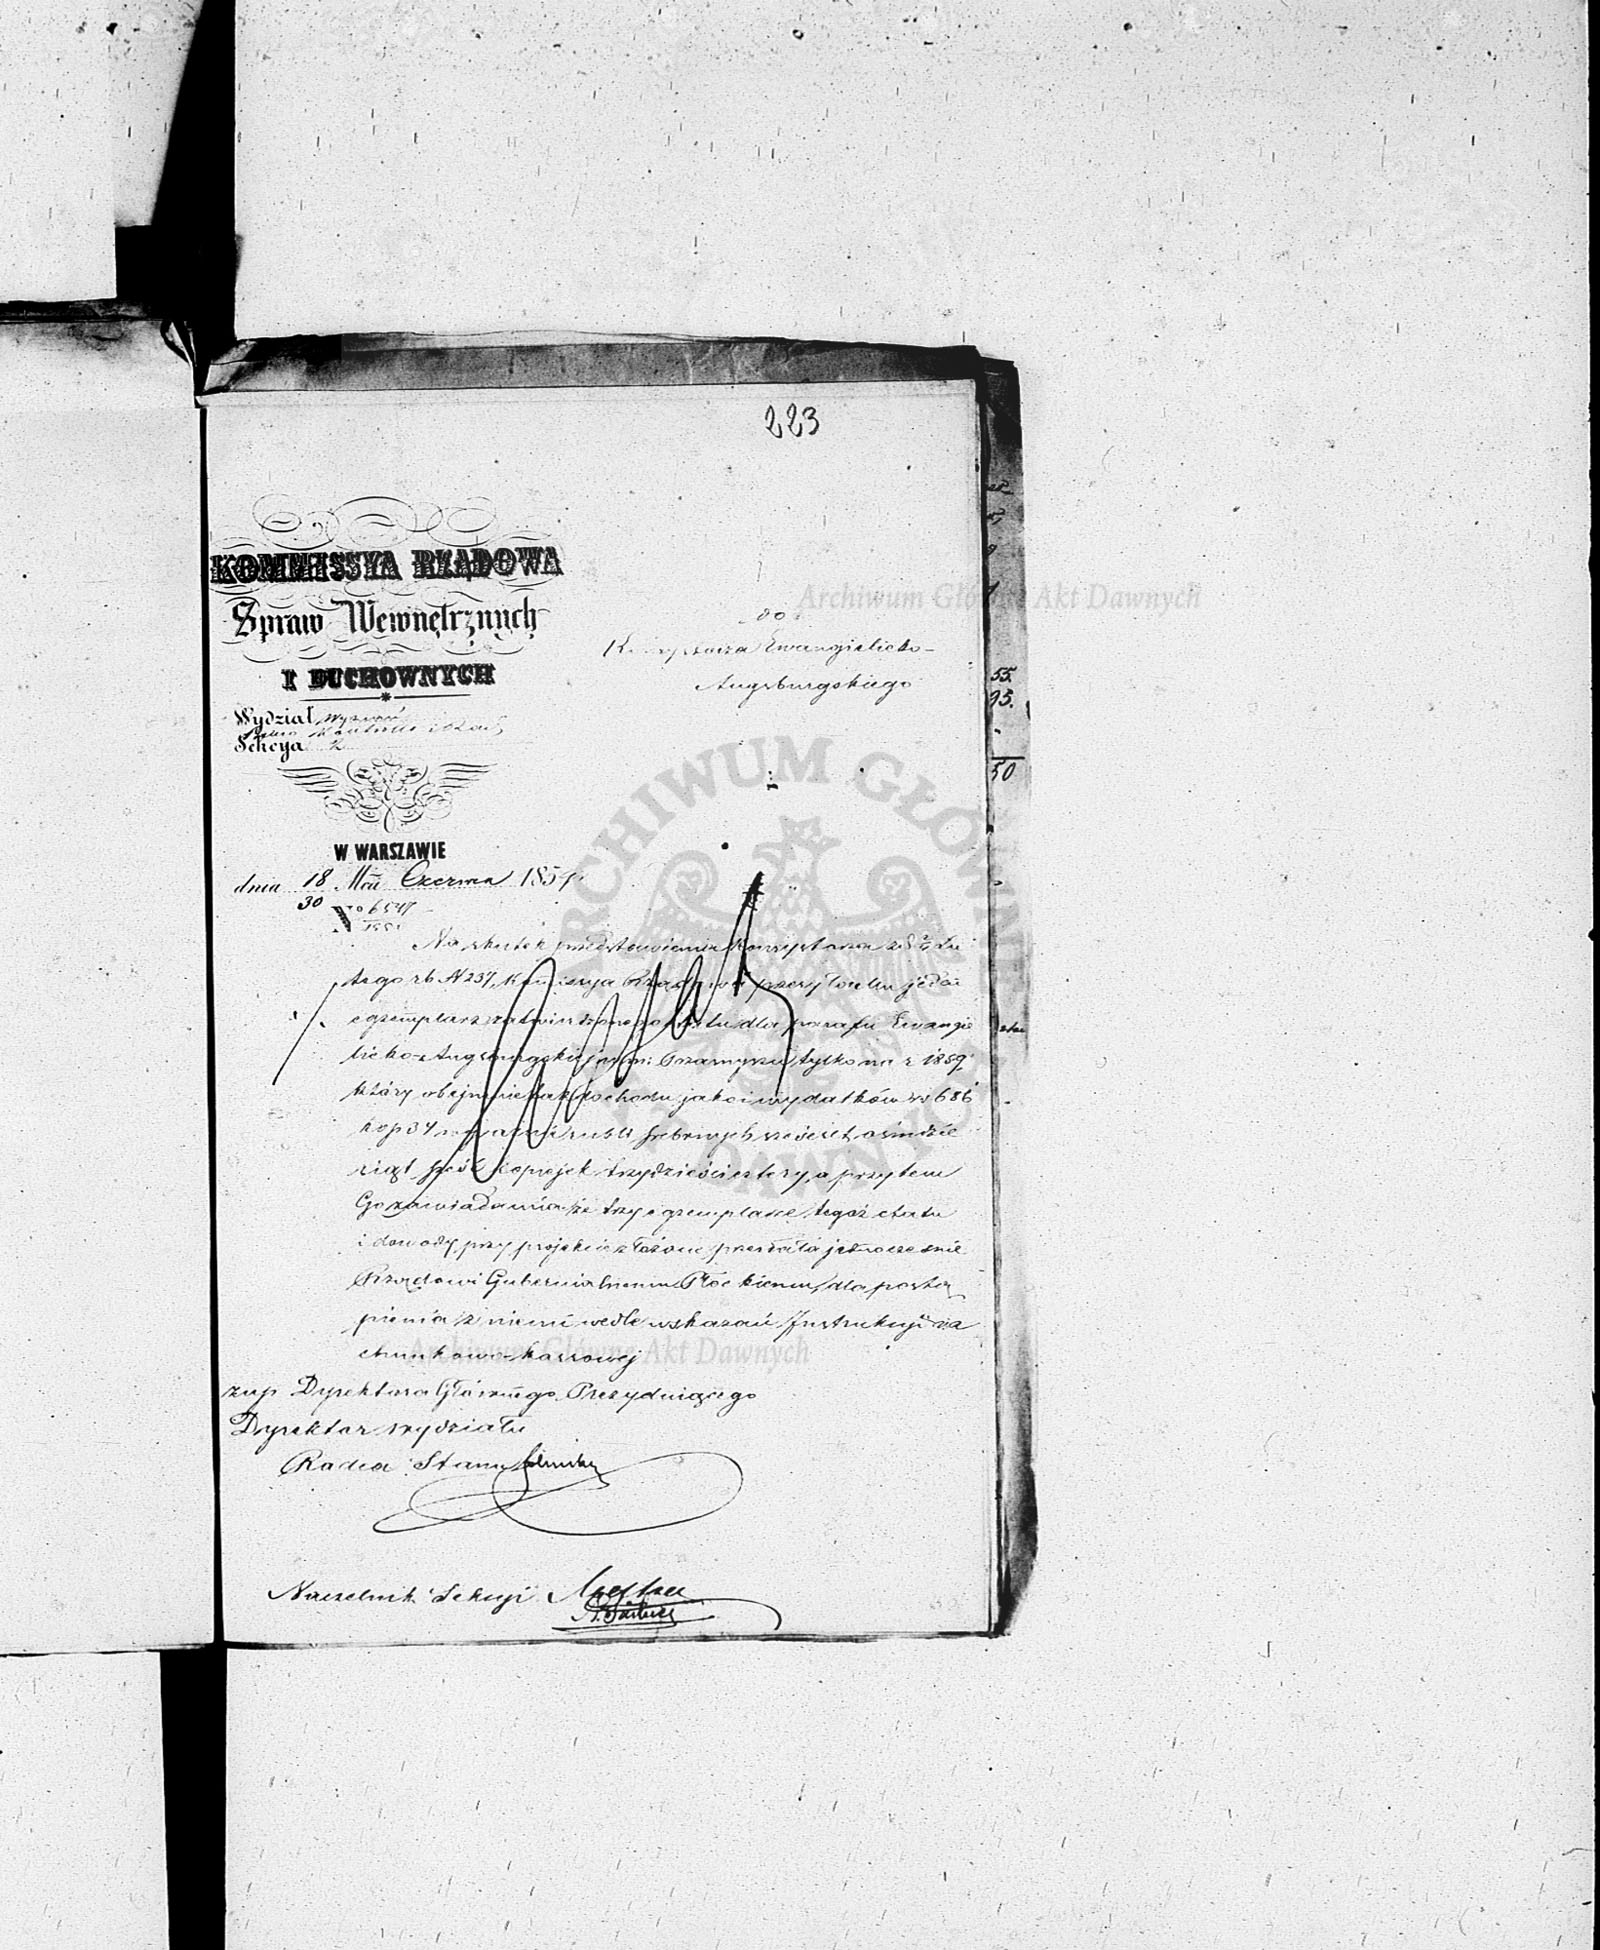 223
KOMMISSYA RZĄDOWA
Spraw Wewnętrznych
I DUCHOWNYCH
Wydział Wyznań
Sekcya
W WARSZAWIE
dnia 18/30 Czerwca 185
No
do
Ewangielicko-
Augsburgskiego
Na skutek przedstawienia Konsystorza
tego r b N 237, Kommissya Rządowa przesyła mu jeden
egzemplarz zatwierdzonego etatu dla parafii Ewangie
licko-Augsburgskiej w m: Przasnyszu tylko na r 1859
który obejmuje tak dochodu jako i wydatków rs 686
kop 34 wyraźnie rubli srebrnych sześćset ośmdzie
siąt sześć kopiejek trzydzieści cztery, a przytem
Go zawiadamia że trzy egzemplarze tegoż etatu
i dowody przy projekcie złożone przesłała jednocześnie
Rządowi Gubernialnemu Płockiemu, dla postą
pienia z niemi wedle wskazań Instrukcyi ra
chunkowo-kassowej
z up Dyrektora Głównego Prezydującego
Dyrektor wydziału
Radca Stanu
Naczelnik Sekcyi
55.
95.
50
Archiwum Główne Akt Dawnych
ARCHIWUM GŁÓWNE AKT DAWNYCH
Archiwum Główne Akt Dawnych